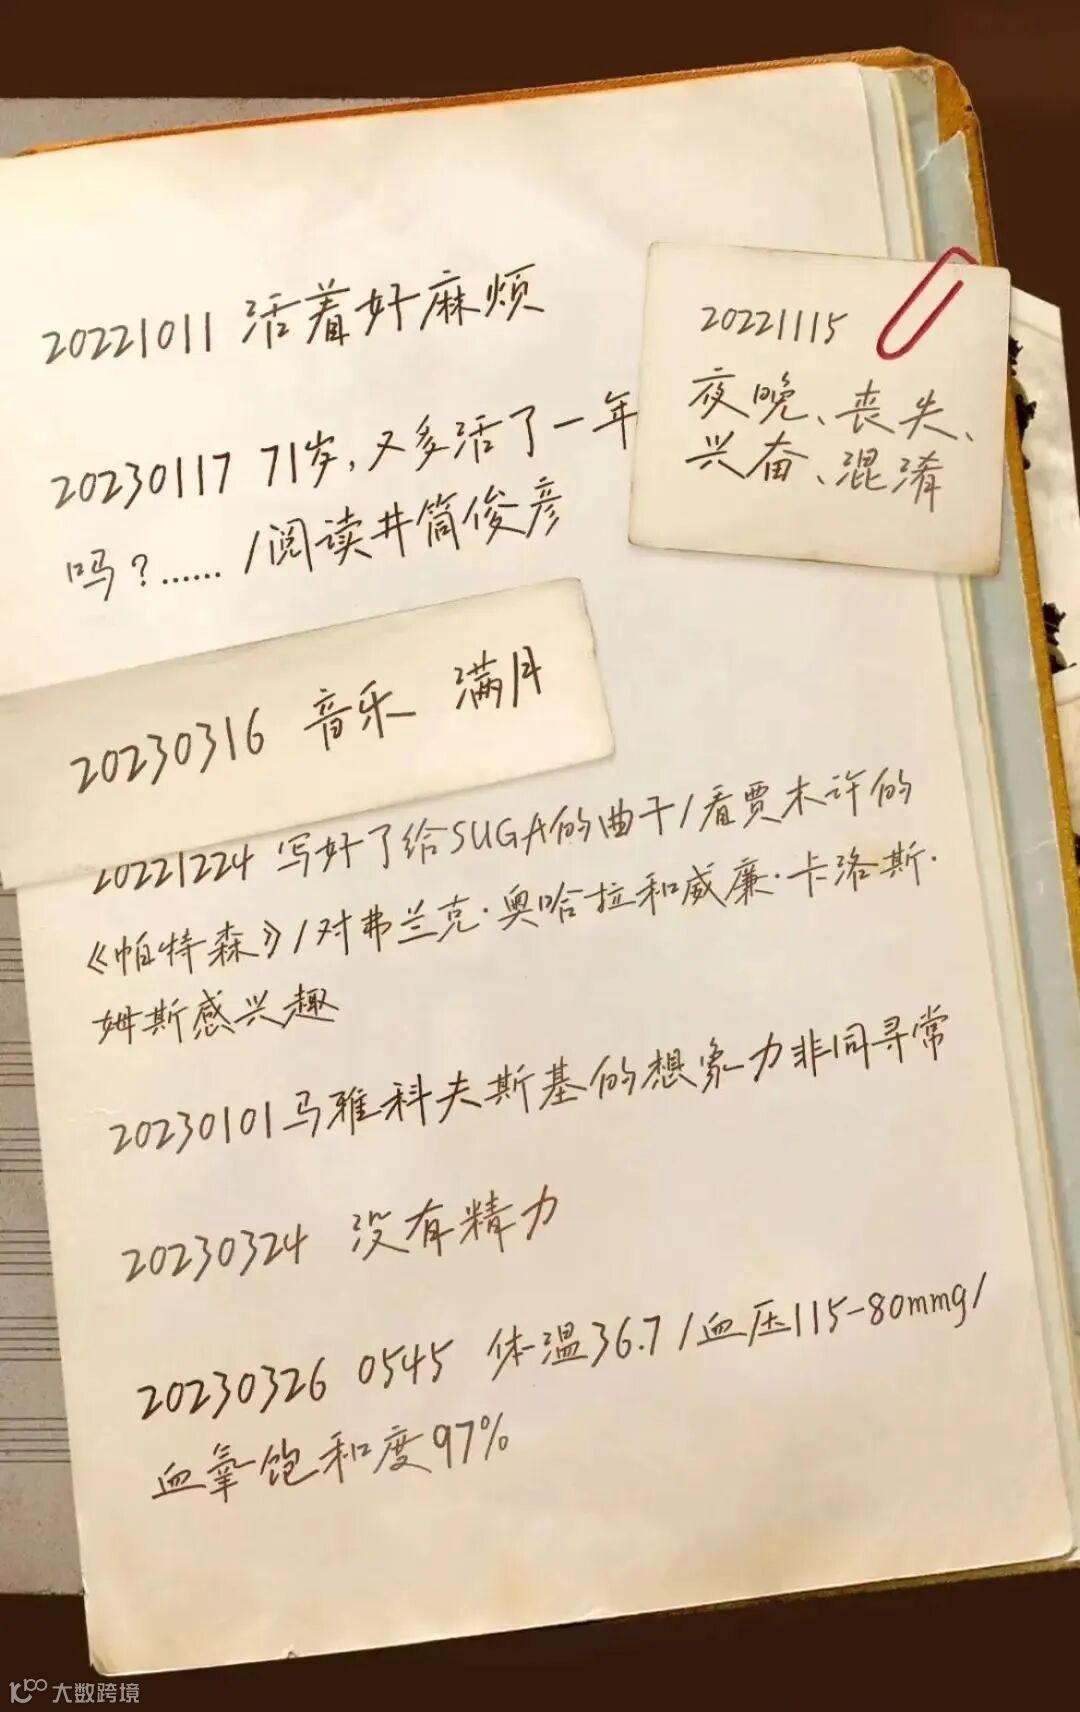 20221011 活着好麻烦
20221115
夜晚、丧失、
兴奋、混淆
20230117 71岁,又多活了一年
吗?…… /阅读井筒俊彦
20230316 音乐 满月
20221224 写好了给SUGA的曲子/看贾木许的
《帕特森》/对弗兰克·奥哈拉和威廉·卡洛斯·
姆斯感兴趣
20230101马雅科夫斯基的想象力非同寻常
20230324 没有精力
20230326 0545 体温36.7/血压115-80mmg/
血氧饱和度97%
大数跨境